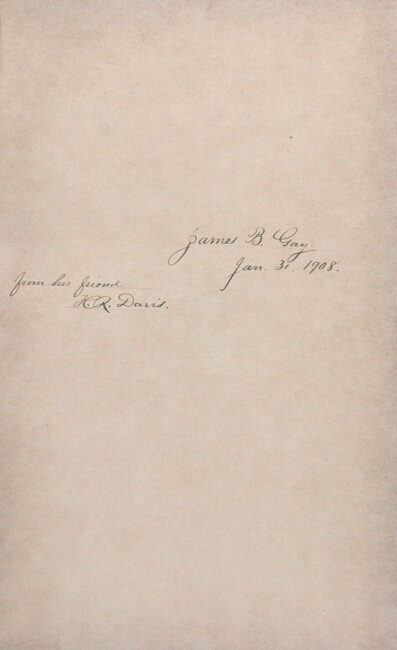 James B. Gay.
Jan. 31, 1908.
from his friend
H. R. Davis.